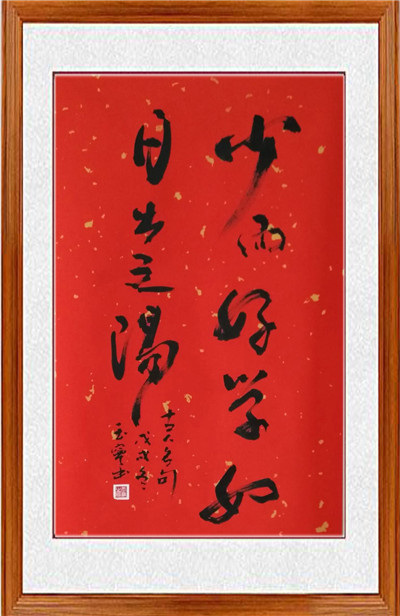 少而好学如
日出之陽
古人名句
戊戌冬
玉
书